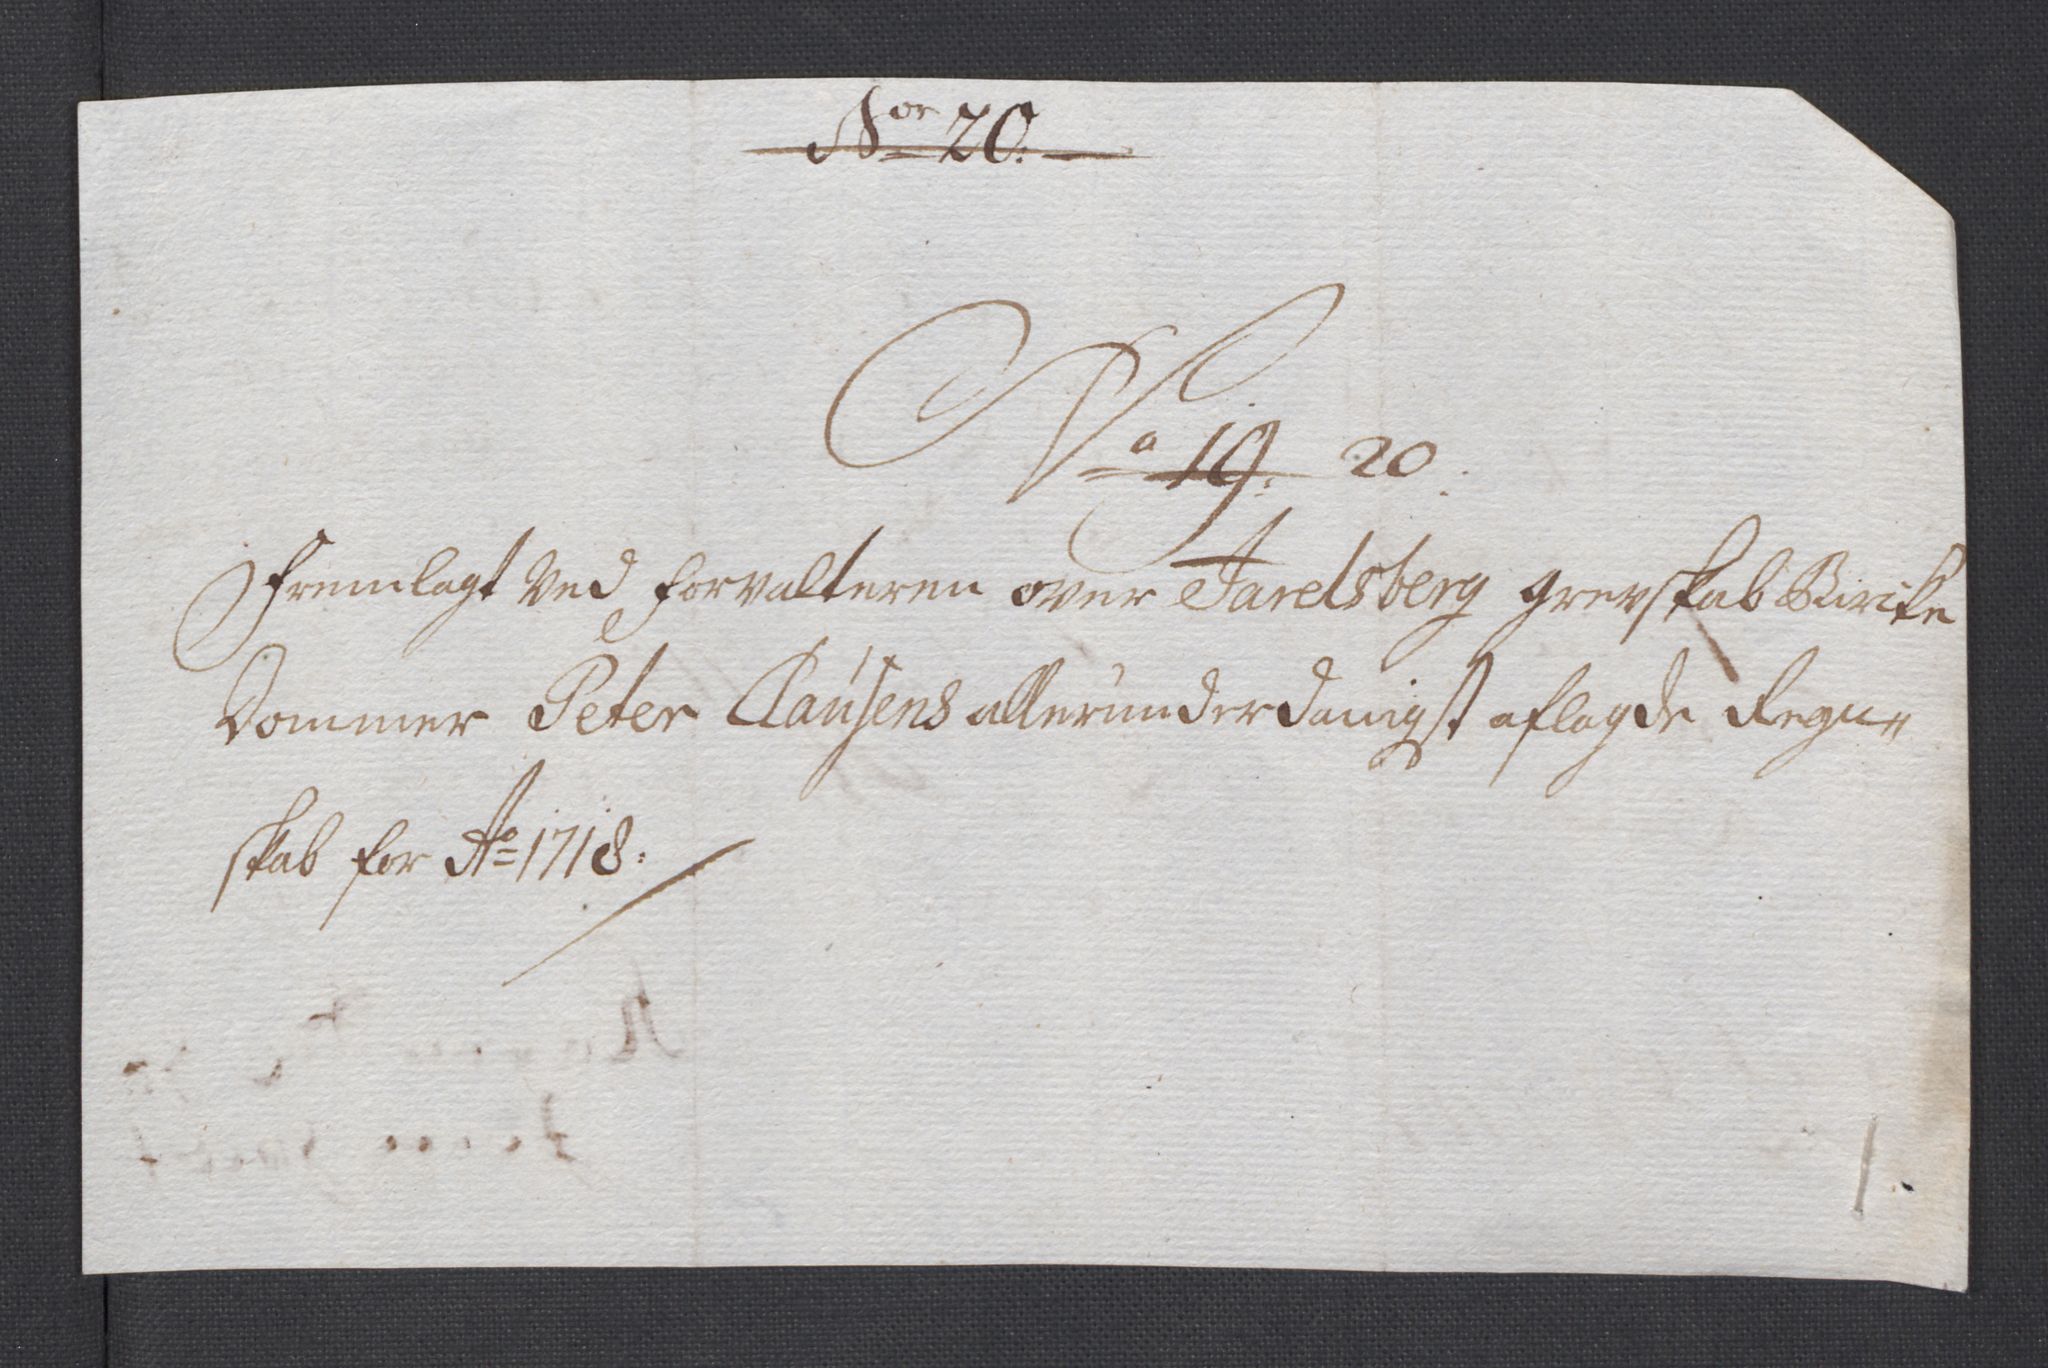 Nor 20.
No 19. 20.
Fremlagt ved forvalteren over Jarelsberg grevskab Birike
Dommer Peter Clausens allerunderdanigst aflagde Regn=
skab for Ao 1718.